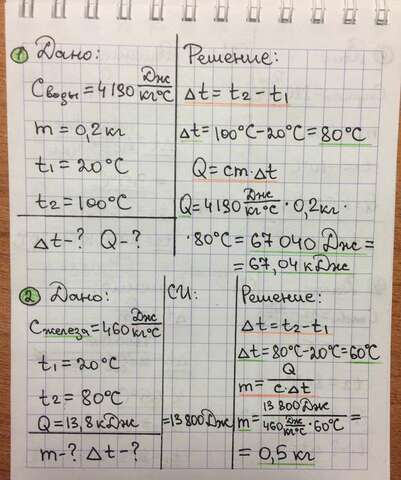 ① Дано:
Cводы = 4190 Дж/кг°C
m = 0,2 кг
t₁ = 20°C
t₂ = 100°C
Δt-? Q-?
Решение:
Δt = t₂ - t₁
Δt = 100°C - 20°C = 80°C
Q = cm·Δt
Q = 4190 Дж/кг°C · 0,2кг ·
· 80°C = 67 040 Дж =
= 67,04 кДж
② Дано:
Cжелеза = 460 Дж/кг°C
t₁ = 20°C
t₂ = 80°C
Q = 13,8 кДж
m-? Δt-?
СИ:
= 13 800 Дж
Решение:
Δt = t₂ - t₁
Δt = 80°C - 20°C = 60°C
m = Q/c·Δt
m = 13 800 Дж/460 Дж/кг°C · 60°C =
= 0,5 кг